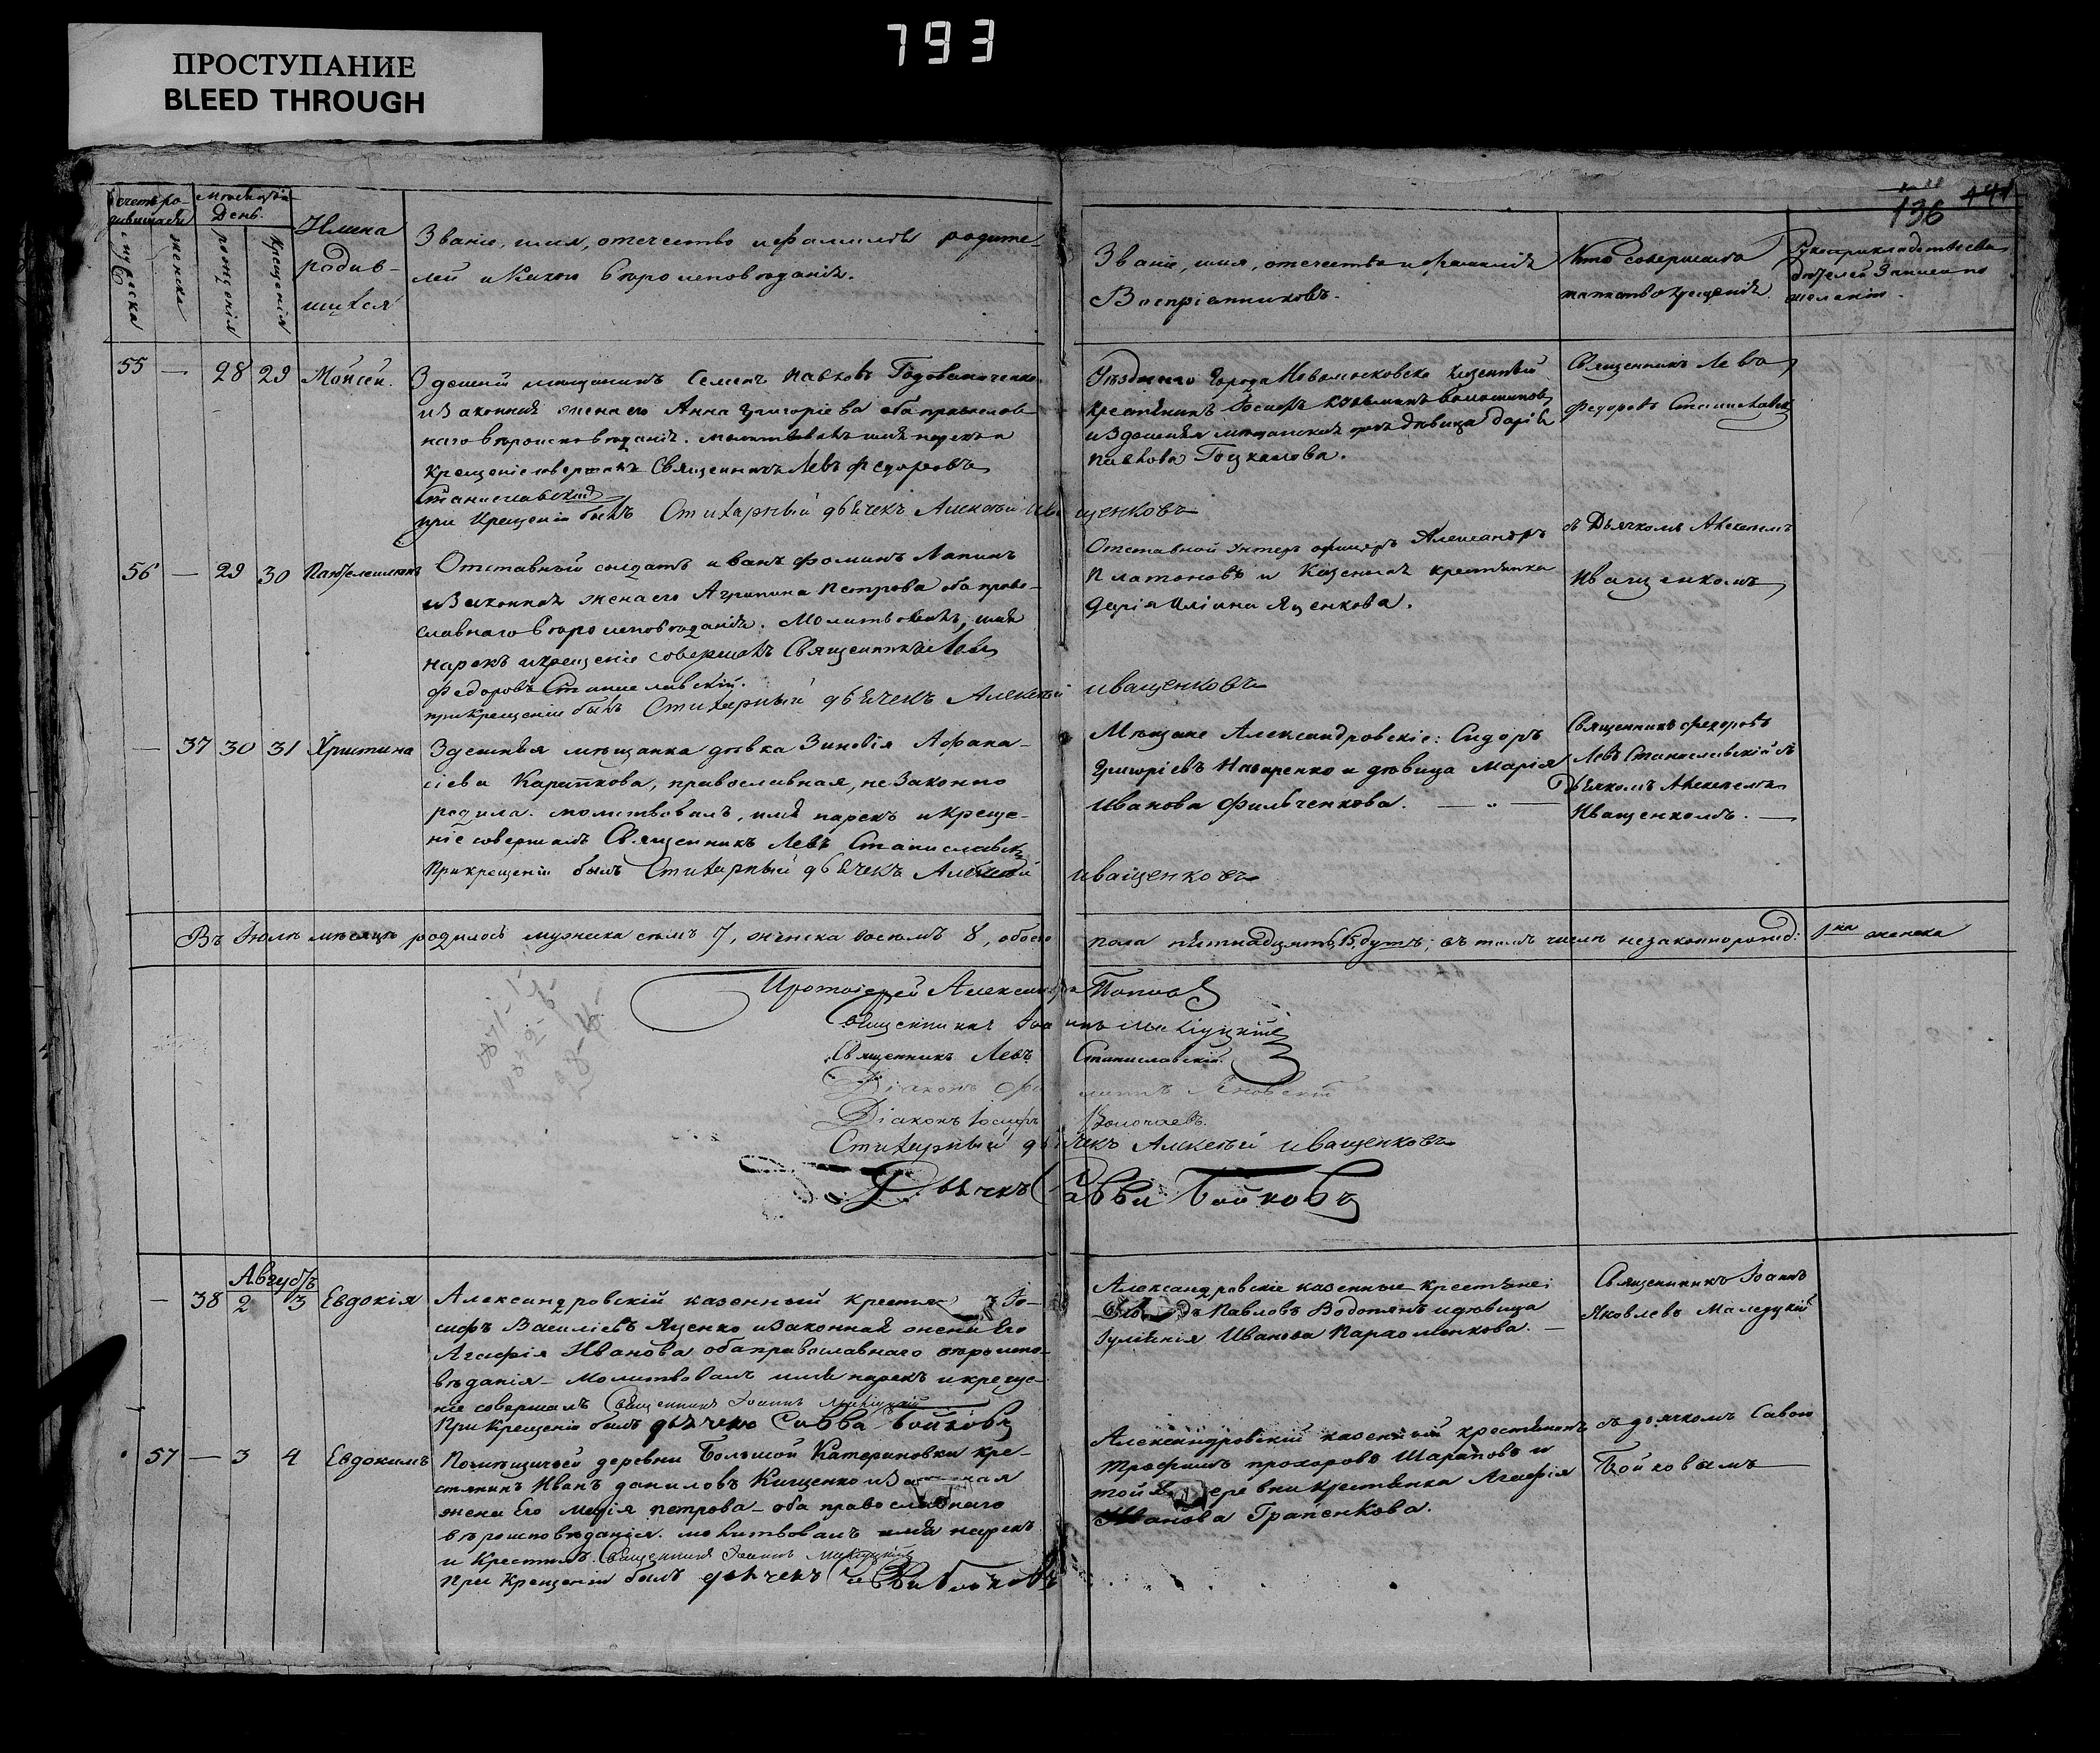 793
ПРОСТУПАНИЕ
BLEED THROUGH
136 441
Счетъ ро-
дившихся
Мѣсяцъ и
День.
мужеска
женска
рожденія
крещенія
Имена
родив-
шихся
Званіе, имя, отечество и фамилія родите-
лей и какого вѣроисповѣданія.
Званіе, имя, отечество и фамилія
Воспріемниковъ.
Кто совершалъ
таинство крещенія.
Рукоприкладство свѣ-
дѣтелей записи по
желанію.
55 — 28 29 Мойсей.
Здешній мещанинъ Семенъ Павловъ
и законная жена его Анна Григоріева оба православ-
наго вѣроисповѣданія. Молитвовалъ имя нарекъ и
крещеніе совершалъ Священникъ Левъ Федоровъ
Станиславскій
при крещеніи былъ Стихарный дьячекъ Алексѣй Иващенковъ
Уѣзднаго города Новомосковска казенный
крестьянинъ Іосифъ
и здешняя мещанская дѣвица Дарія
Павлова
Священникъ Левъ
Федоровъ Станиславскій
56 — 29 30 Пантелеимонъ
Отставный солдатъ Иванъ Фоминъ Лапинъ
и законная жена его Агрипина Петрова оба право-
славнаго вѣроисповѣданія. Молитвовалъ, имя
нарекъ и крещеніе совершалъ Священникъ Левъ
Федоровъ Станиславскій.
при крещеніи былъ Стихарный дьячекъ Алексѣй Иващенковъ
Отставной унтеръ офицеръ Александръ
Платоновъ и казенная крестьянка
Дарія Яценкова.
съ Дьячкомъ Алексѣемъ
Иващенкомъ
— 37 30 31 Христина
Здешняя мѣщанка дѣвка Зиновія Афана-
сіева, православная, незаконно
родила. молитвовалъ, имя нарекъ и креще-
ніе совершалъ Священникъ Левъ Станиславскій
При крещеніи былъ Стихарный дьячекъ Алексѣй Иващенковъ
Мѣщане Александровскіе: Сидоръ
Григоріевъ Назаренко и дѣвица Марія
Иванова Фильченкова. — „ —
Священникъ Федоровъ
Левъ Станиславскій съ
Дьячкомъ Алексѣемъ
Иващенкомъ. —
Въ Іюлѣ мѣсяцѣ родилось мужеска семь 7, женска восемь 8, обоего пола пятнадцять 15 душъ; въ томъ числѣ незаконнорожд: 1на женска
Протоіерей Александръ Поповъ
Священникъ Іоаннъ Малецкій
Священникъ Левъ Станиславскій.
Діаконъ Яновскій
Діаконъ Іосифъ
Стихарный дьячекъ Алексѣй Иващенковъ
Дьячекъ Савва Бойковъ
Августъ
— 38 2 3 Евдокія
Александровскій казенный Іо-
сифъ Василіевъ Яценко и законная жена Его
Агафія Иванова оба православнаго вѣроиспо-
вѣданія — Молитвовалъ имя нарекъ и креще-
ніе совершалъ Священникъ Іоаннъ Малецкій
При крещеніи былъ дьячекъ Савва Бойковъ
Александровскіе казенные крестьяне:
Павловъ и дѣвица
Іуліянія Иванова Пархоменкова. —
Священникъ Іоаннъ
Яковлевъ Малецкій
57 — 3 4 Евдокимъ
Помѣщичьей деревни Большой Катериновки кре-
стянинъ Иванъ Даниловъ Кищенко и законная
жена Его Марія Петрова — оба православнаго
вѣроисповѣданія. молитвовалъ имя нарекъ
и крестилъ Священникъ Іоаннъ Малецкій
При крещеніи былъ дьячекъ Савва Бойковъ
Александровскій казенный крестьянинъ
Трофимъ Прохоровъ Шараповъ и
той деревни крестьянка Агафія
Иванова Грапенкова.
съ дьячкомъ Савою
Бойковымъ